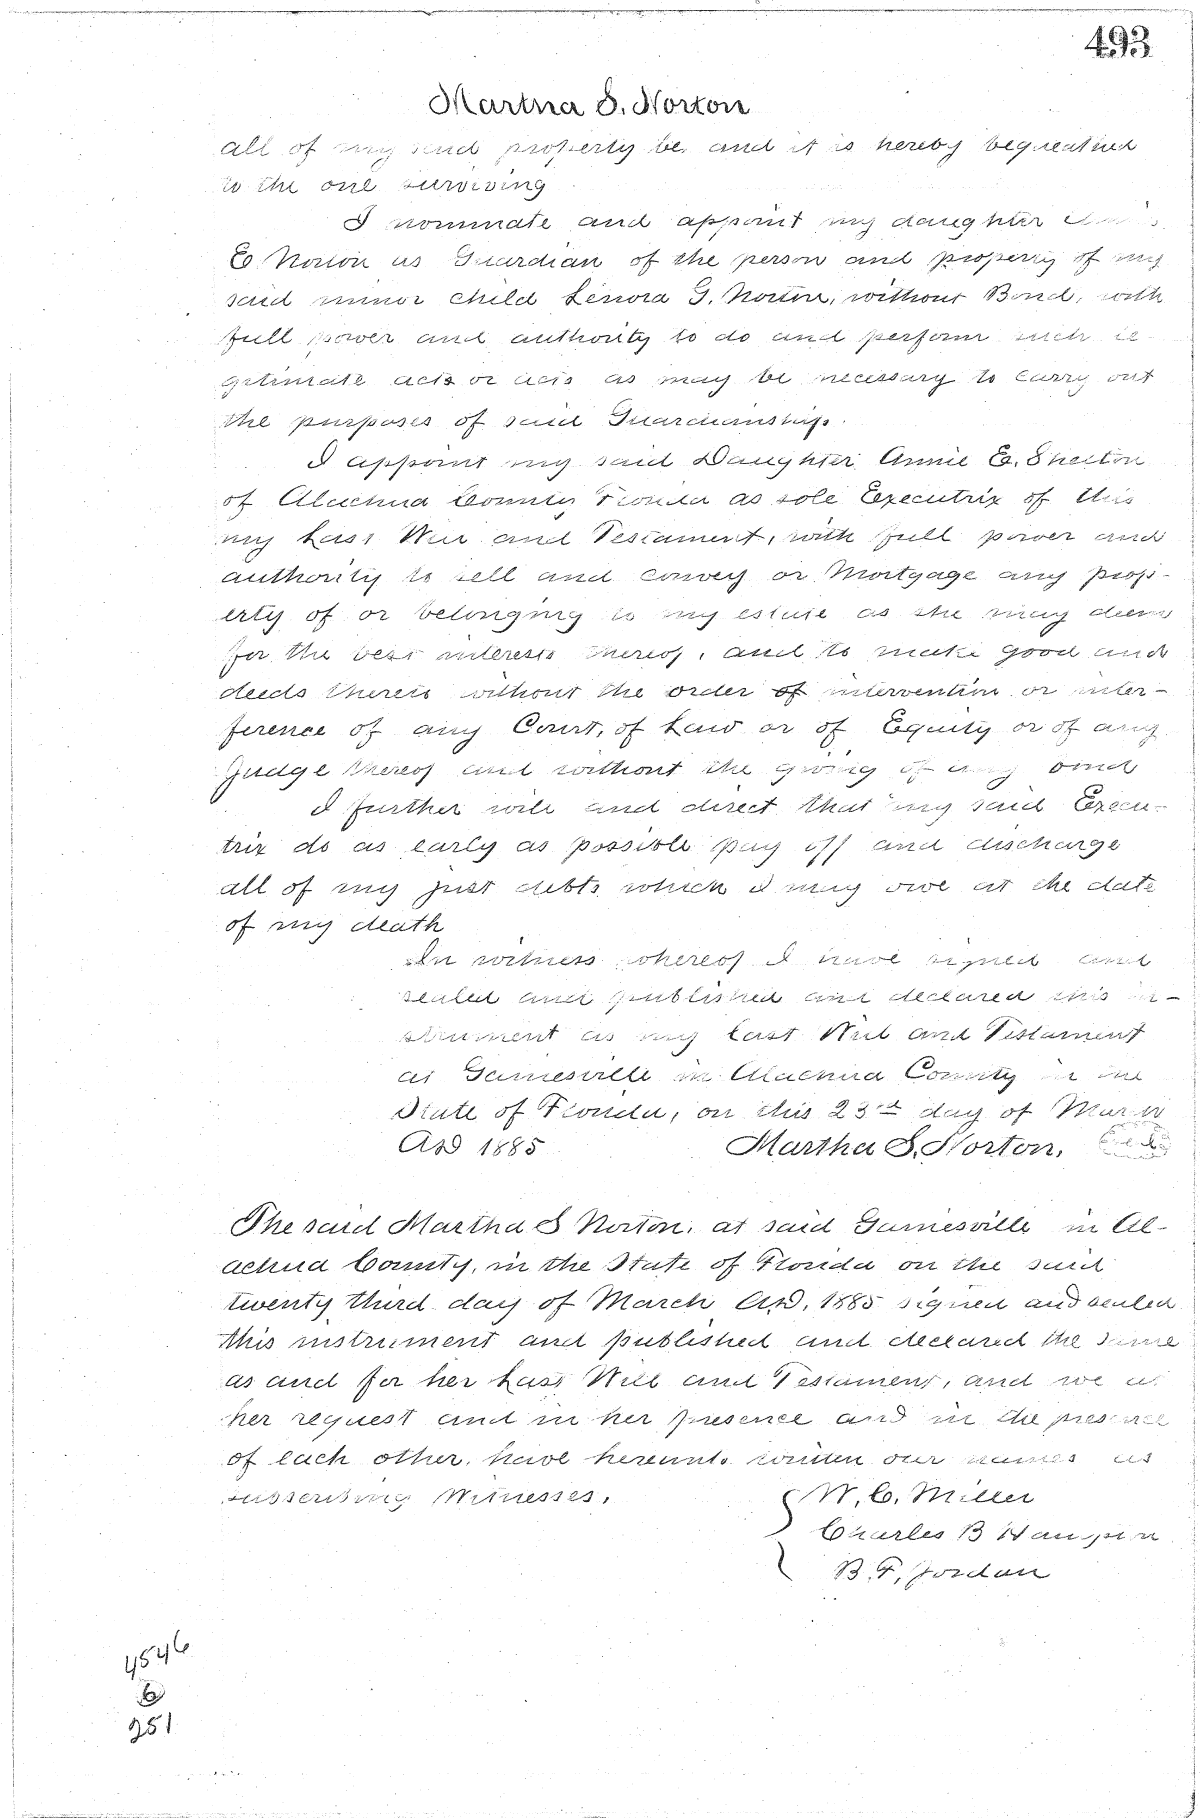 493
Martha S. Norton
all of my said property be, and it is hereby bequeathed
to the one surviving
I nominate and appoint my daughter
E. Norton as Guardian of the person and property of my
said minor child Lenora G. Norton, without Bond, with
full power and authority to do and perform such le-
getimate acts or acts as may be necessary to carry out
the purposes of said Guardianship.
I appoint my said Daughter Annie E. Shelton
of Alachua County Florida as sole Executrix of this
my Last Will and Testament, with full power and
authority to sell and convey or Mortgage any prop-
erty of or belonging to my estate as she may deem
for the best interests thereof, and to make good and
deeds thereto without the order of intervention or inter-
ference of any Court, of Law or of Equity or of any
Judge thereof and without the giving of any bond
I further will and direct that my said Execu-
trix do as early as possible pay off and discharge
all of my just debts which I may owe at the date
of my death
In witness whereof I have signed and
sealed and published and declared this in-
strument as my Last Will and Testament
at Gainesville in Alachua County in the
State of Florida, on this 23rd day of March
AD 1885 Martha S. Norton, Seal
The said Martha S Norton, at said Gainesville in Al-
achua County, in the State of Florida on the said
twenty third day of March A.D. 1885 signed and sealed
this instrument and published and declared the same
as and for her Last Will and Testament, and we at
her request and in her presence and in the presence
of each other, have hereunto written our names as
subscribing Witnesses.
W. C. Miller
Charles B
B. F. Jordan
4546
6
251